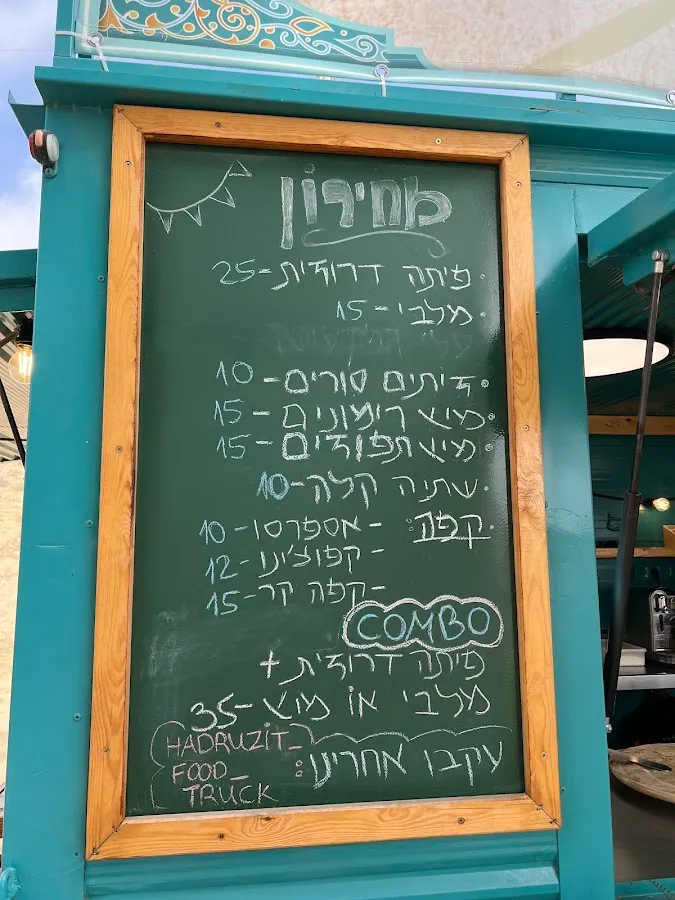 מחירון
פיתה דרוזית - 25
מלבי - 15
זיתים סורים - 10
מיץ רימונים - 15
מיץ תפוזים - 15
שתיה קלה - 10
קפה:
- אספרסו - 10
- קפוצ'ינו - 12
- קפה קר - 15
COMBO
פיתה דרוזית +
מלבי או מיץ - 35
עקבו אחרינו:
HADRUZIT_
FOOD_
TRUCK